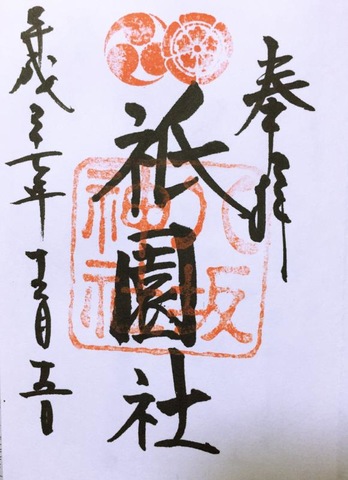 奉拝
八坂
神社
祇園社
平成二十七年十二月五日